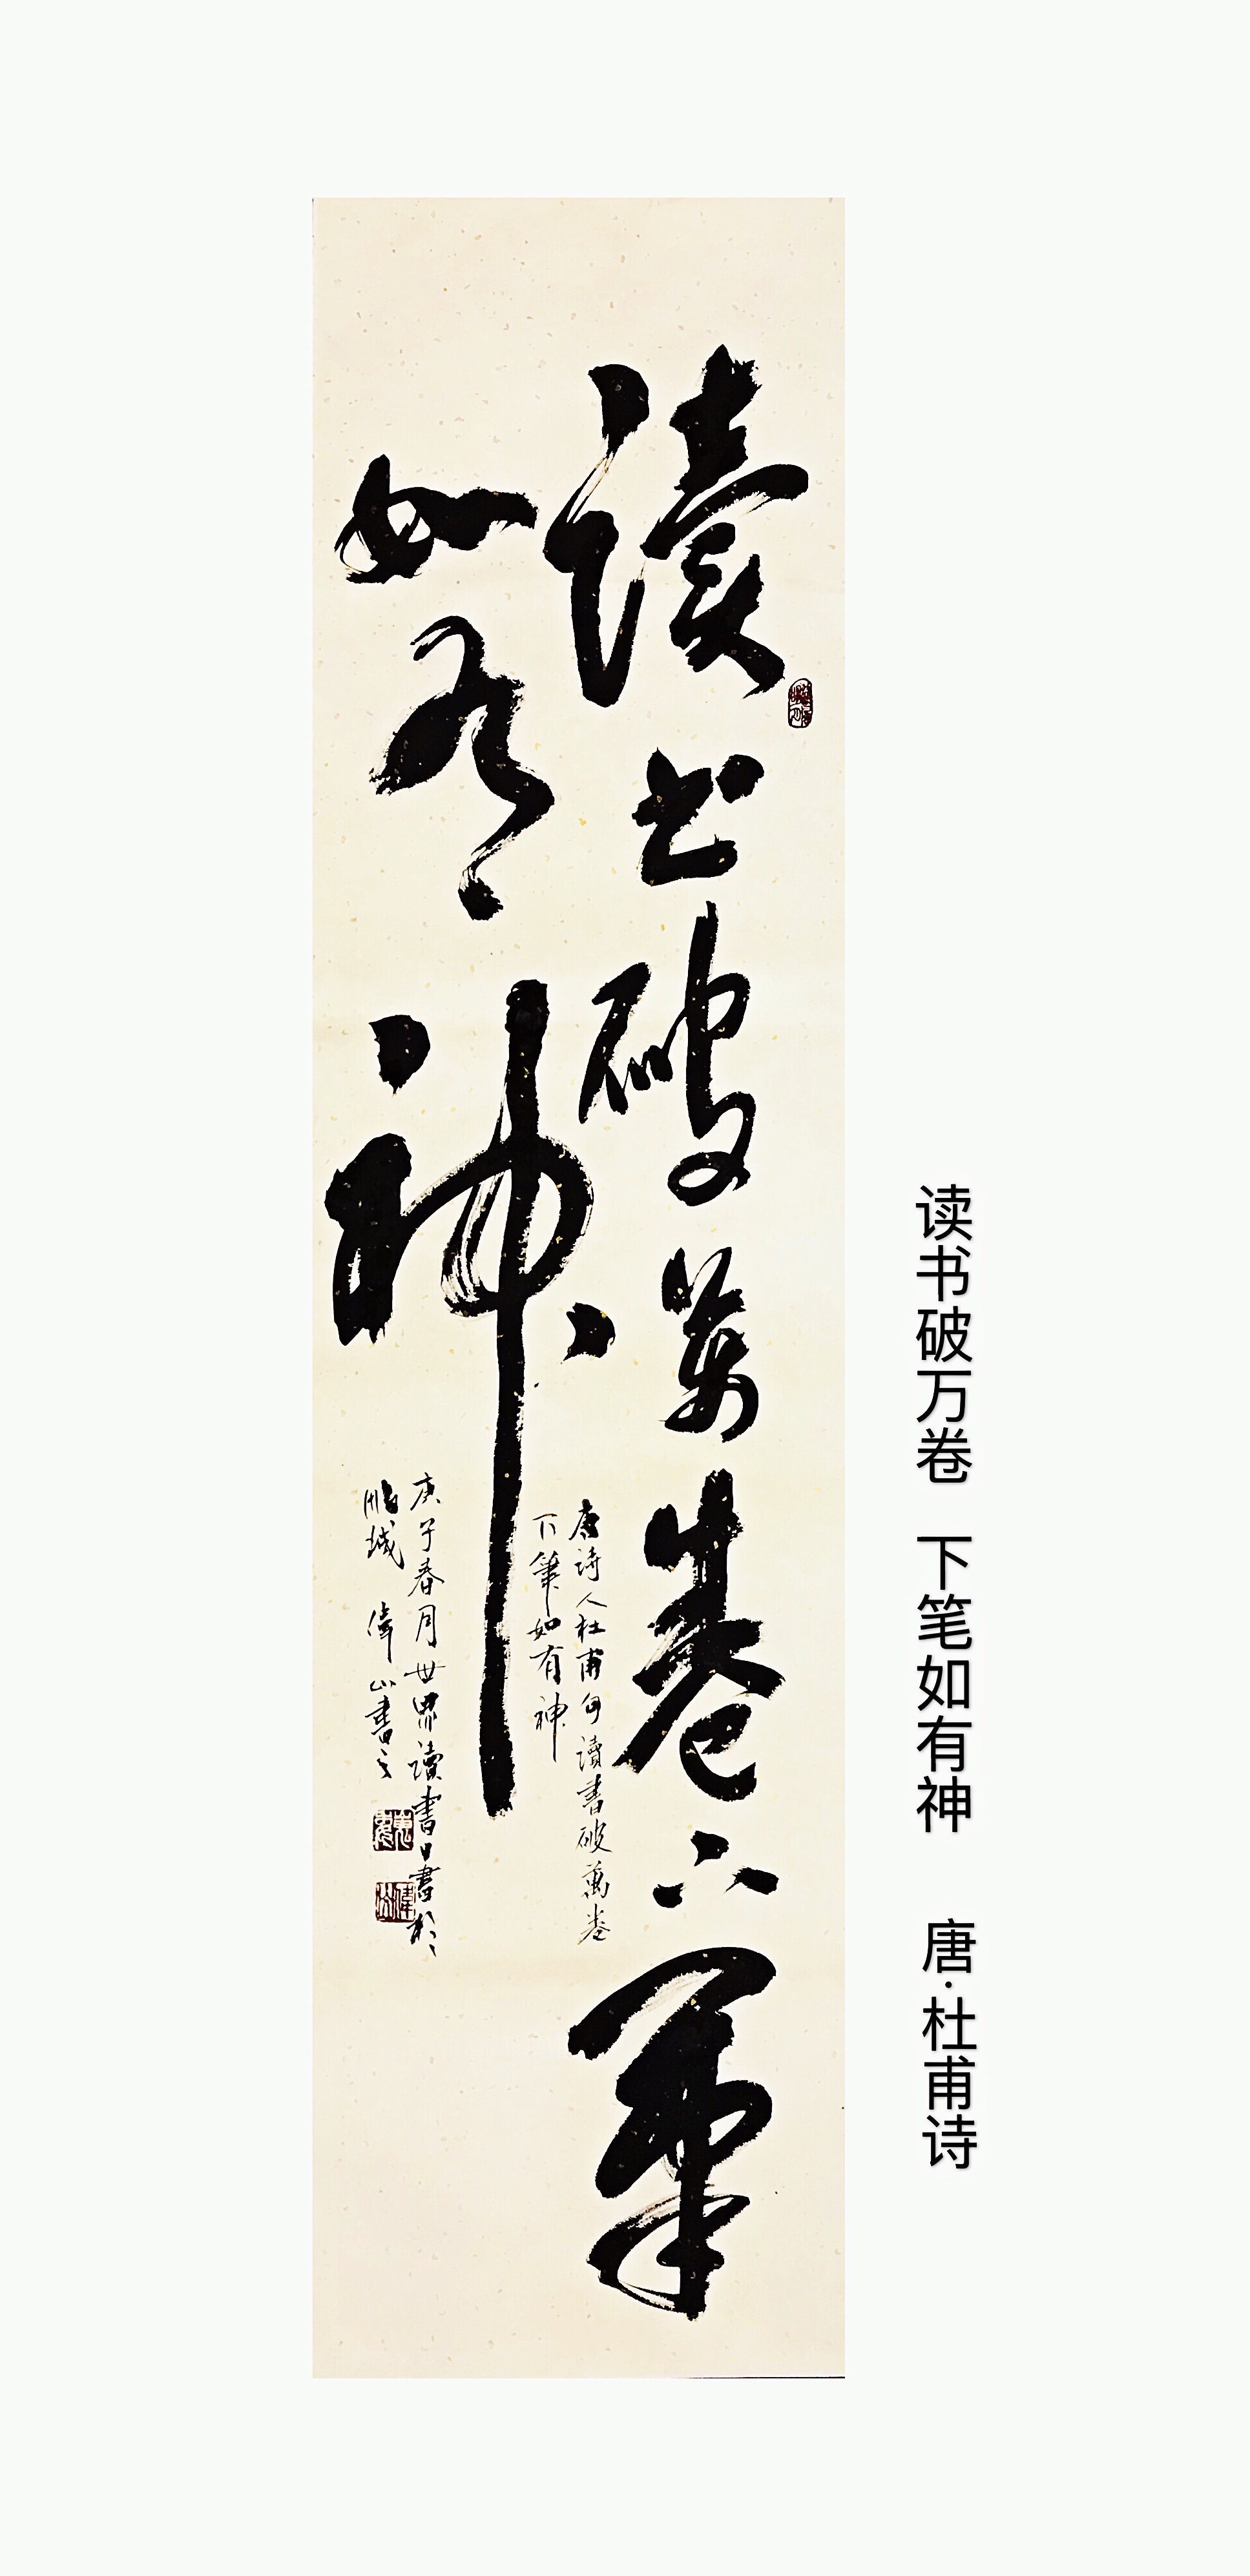 读书破万卷 下笔如有神 唐·杜甫诗
读书破萬卷下筆
如有神
唐诗人杜甫句讀書破萬卷
下筆如有神
庚子春月世界读書日書於
鵬城 偉山書之